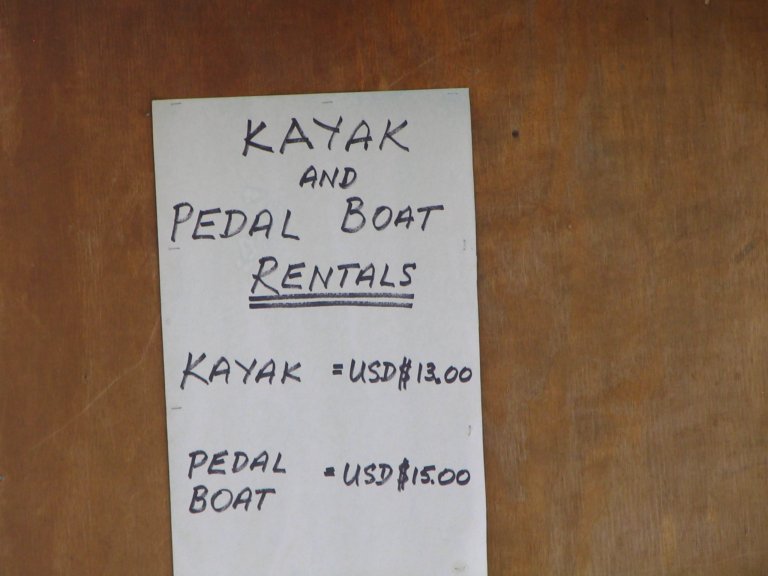 KAYAK
AND
PEDAL BOAT
RENTALS
KAYAK = USD$13.00
PEDAL
BOAT = USD$15.00